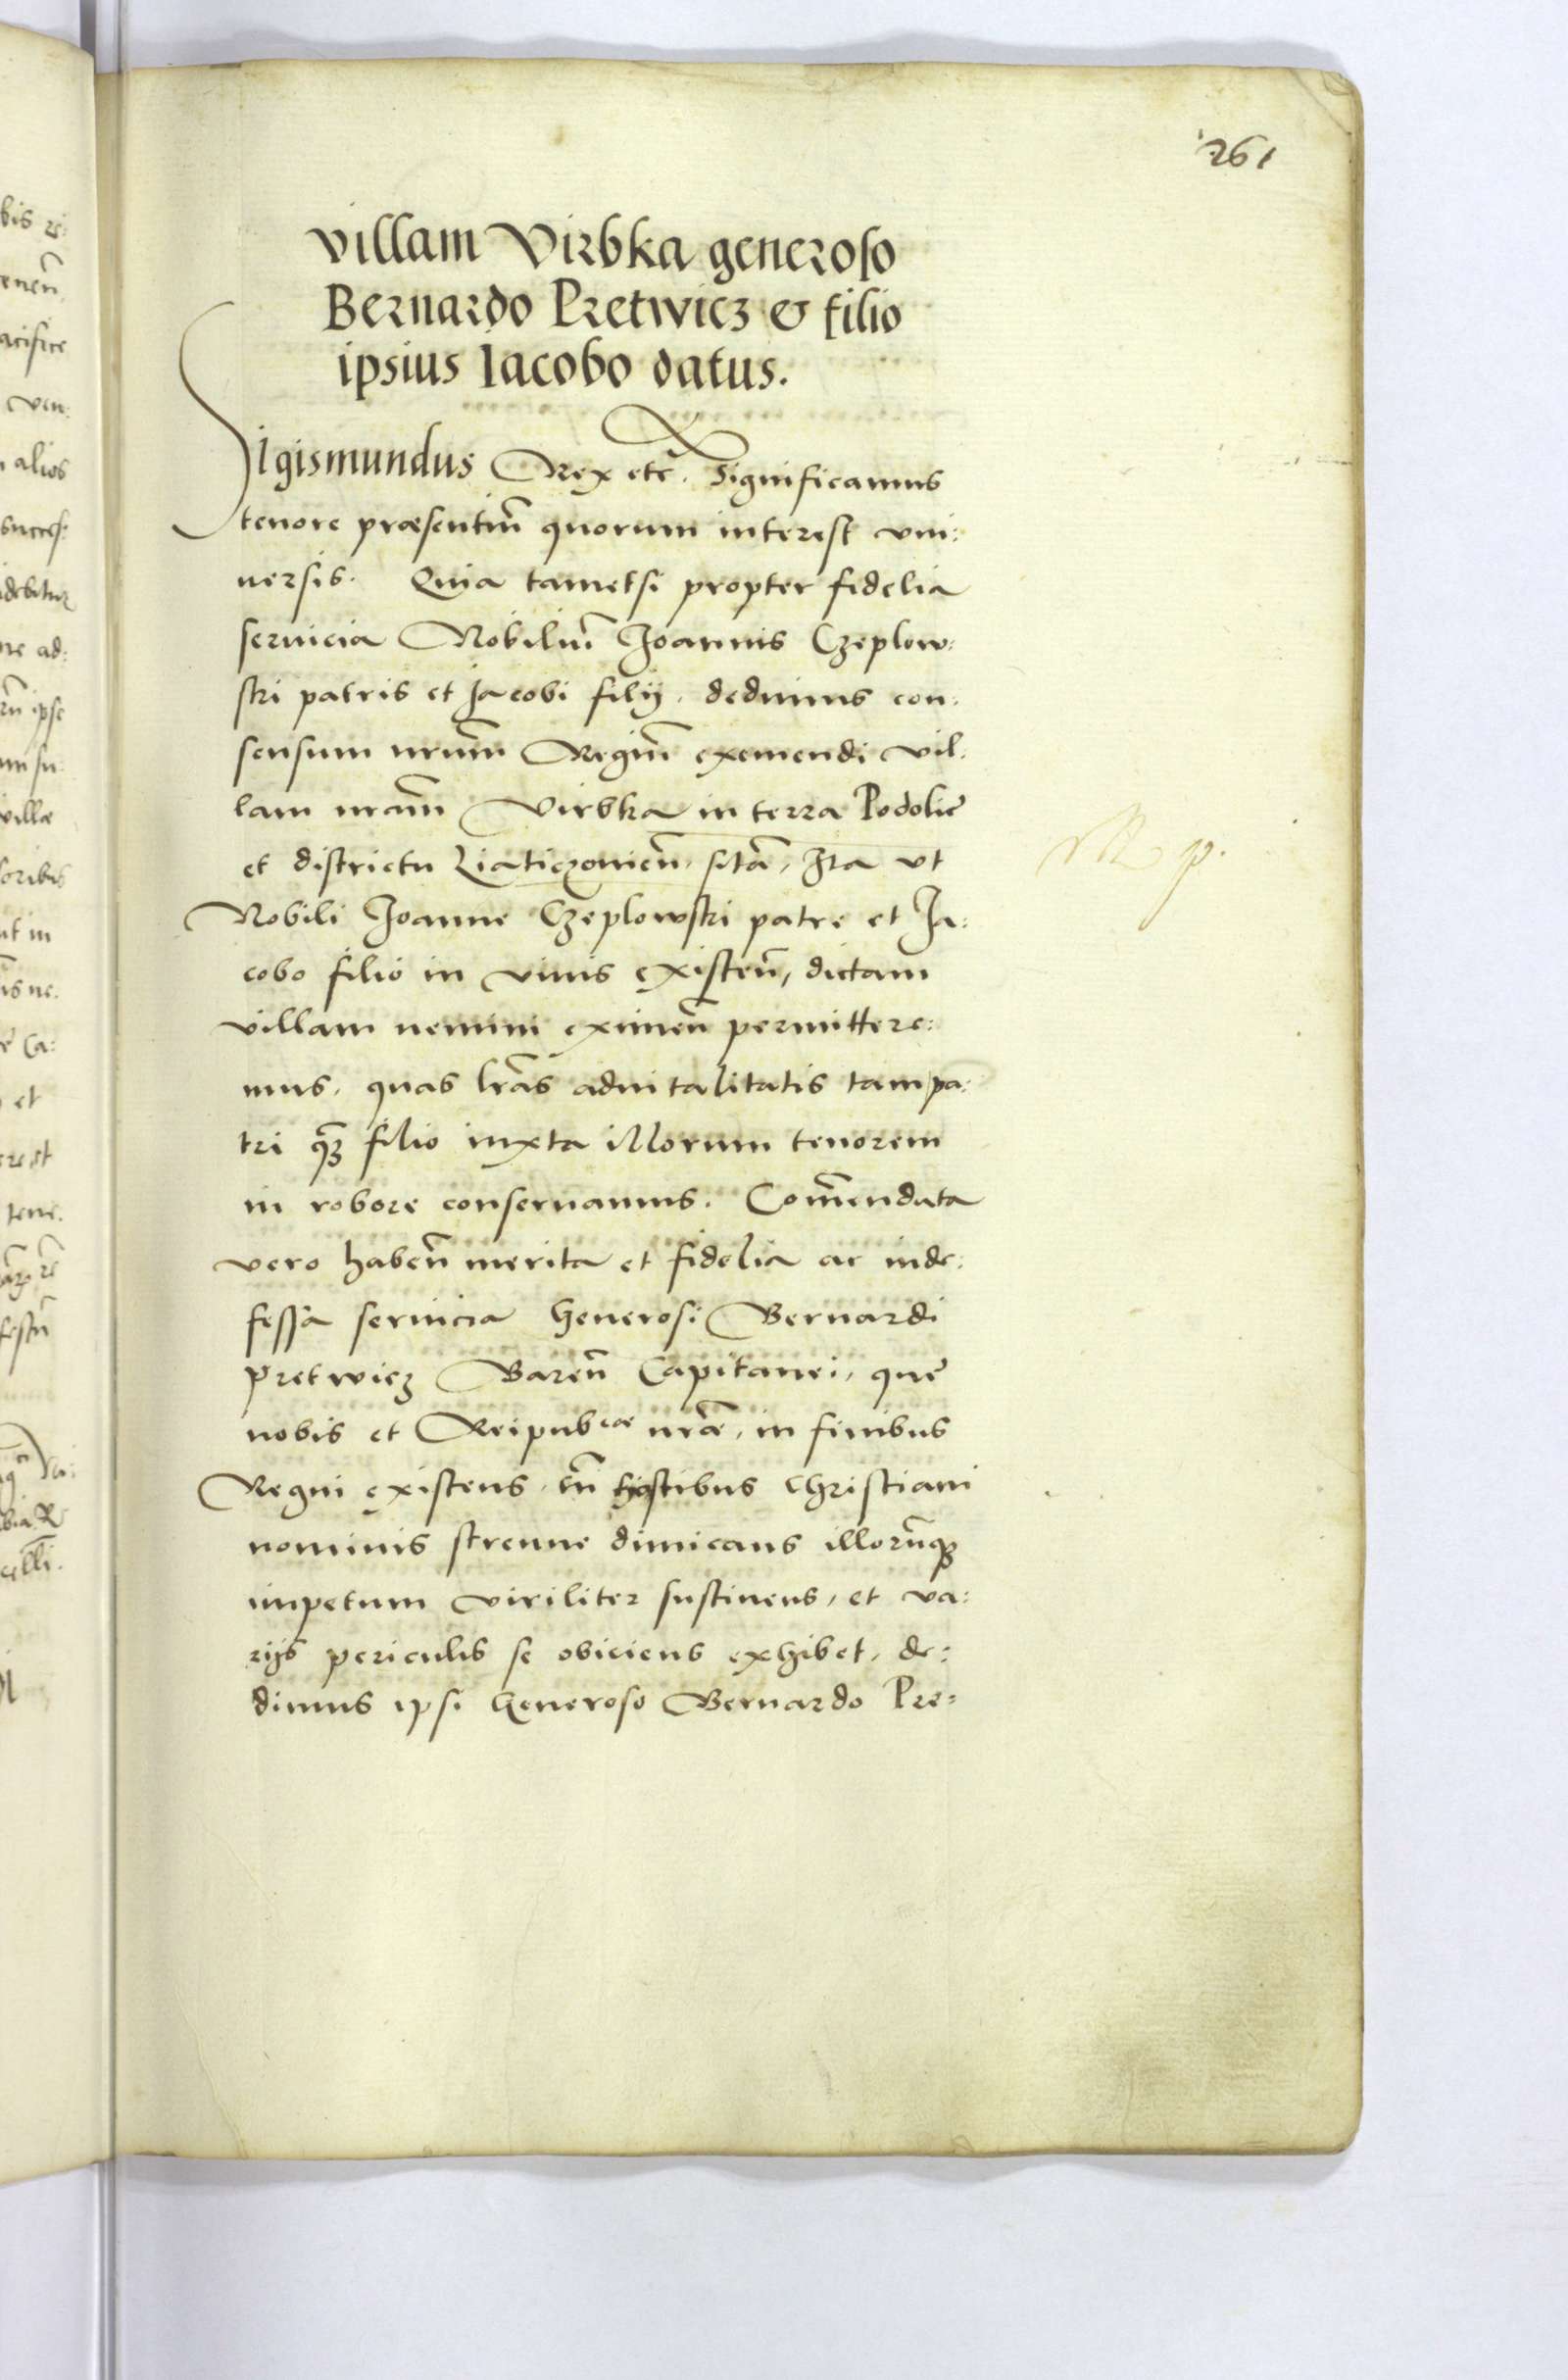 261
villam Virbka generoso
Bernardo Pretwicz & filio
ipsius Iacobo datus.
Sigismundus Rex etc̃. Significamus
tenore præsentiũ quorum interest vni:
uersis. Quia tametsi propter fidelia
seruicia Nobiliũ Joannis Czeplow:
ski patris et Jacobi filij. dedimus con:
sensum nrũm Regiũ exemendi vil:
lam nrãm Virbka in terra Podolie
et districtu Liaticzouieñ. sitã, Ita vt
Nobili Joanne Czeplowski patre et Ja:
cobo filio in viuis existeñ, dictam
villam nemini eximeñ permittere:
mus. quas lrãs aduitalitatis tam pa:
tri q̃ꝫ filio iuxta illorum tenorem
in robore conseruamus. Com̃endata
vero habeñ merita et fidelia ac inde:
fessa seruicia Generosi Bernardi
Pretwicz Bareñ Capitanei, que
nobis et Reipubcae nrãe, in finibus
Regni existens, cũ hostibus Christiani
nominis strenue dimicans illorũqꝫ
impetum viriliter sustinens, et va:
rijs periculis se obiciens exhibet, de:
dimus ipsi Generoso Bernardo Pre: